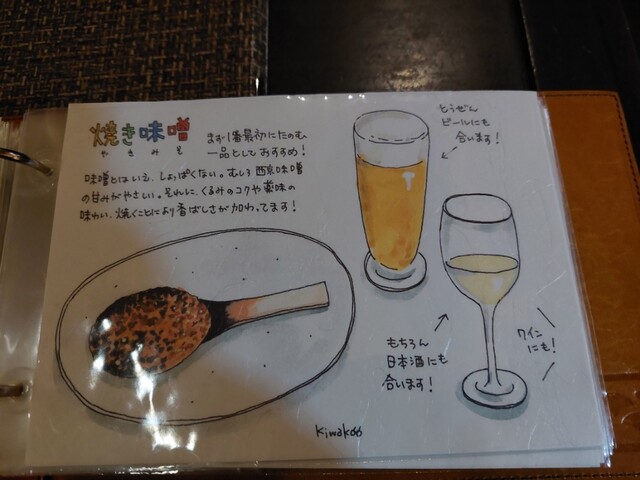 焼き味噌
やきみそ
まず1番最初にたのむ
一品としておすすめ！
味噌とはいえ、しょっぱくない。むしろ西京味噌
の甘みがやさしい。それに、くるみのコクや薬味の
味わい、焼くことにより香ばしさが加わってます！
とうぜん
ビールにも
合います！
もちろん
日本酒にも
合います！
ワイン
にも！
kiwakoo